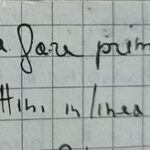 a fare prim
ttini in linea